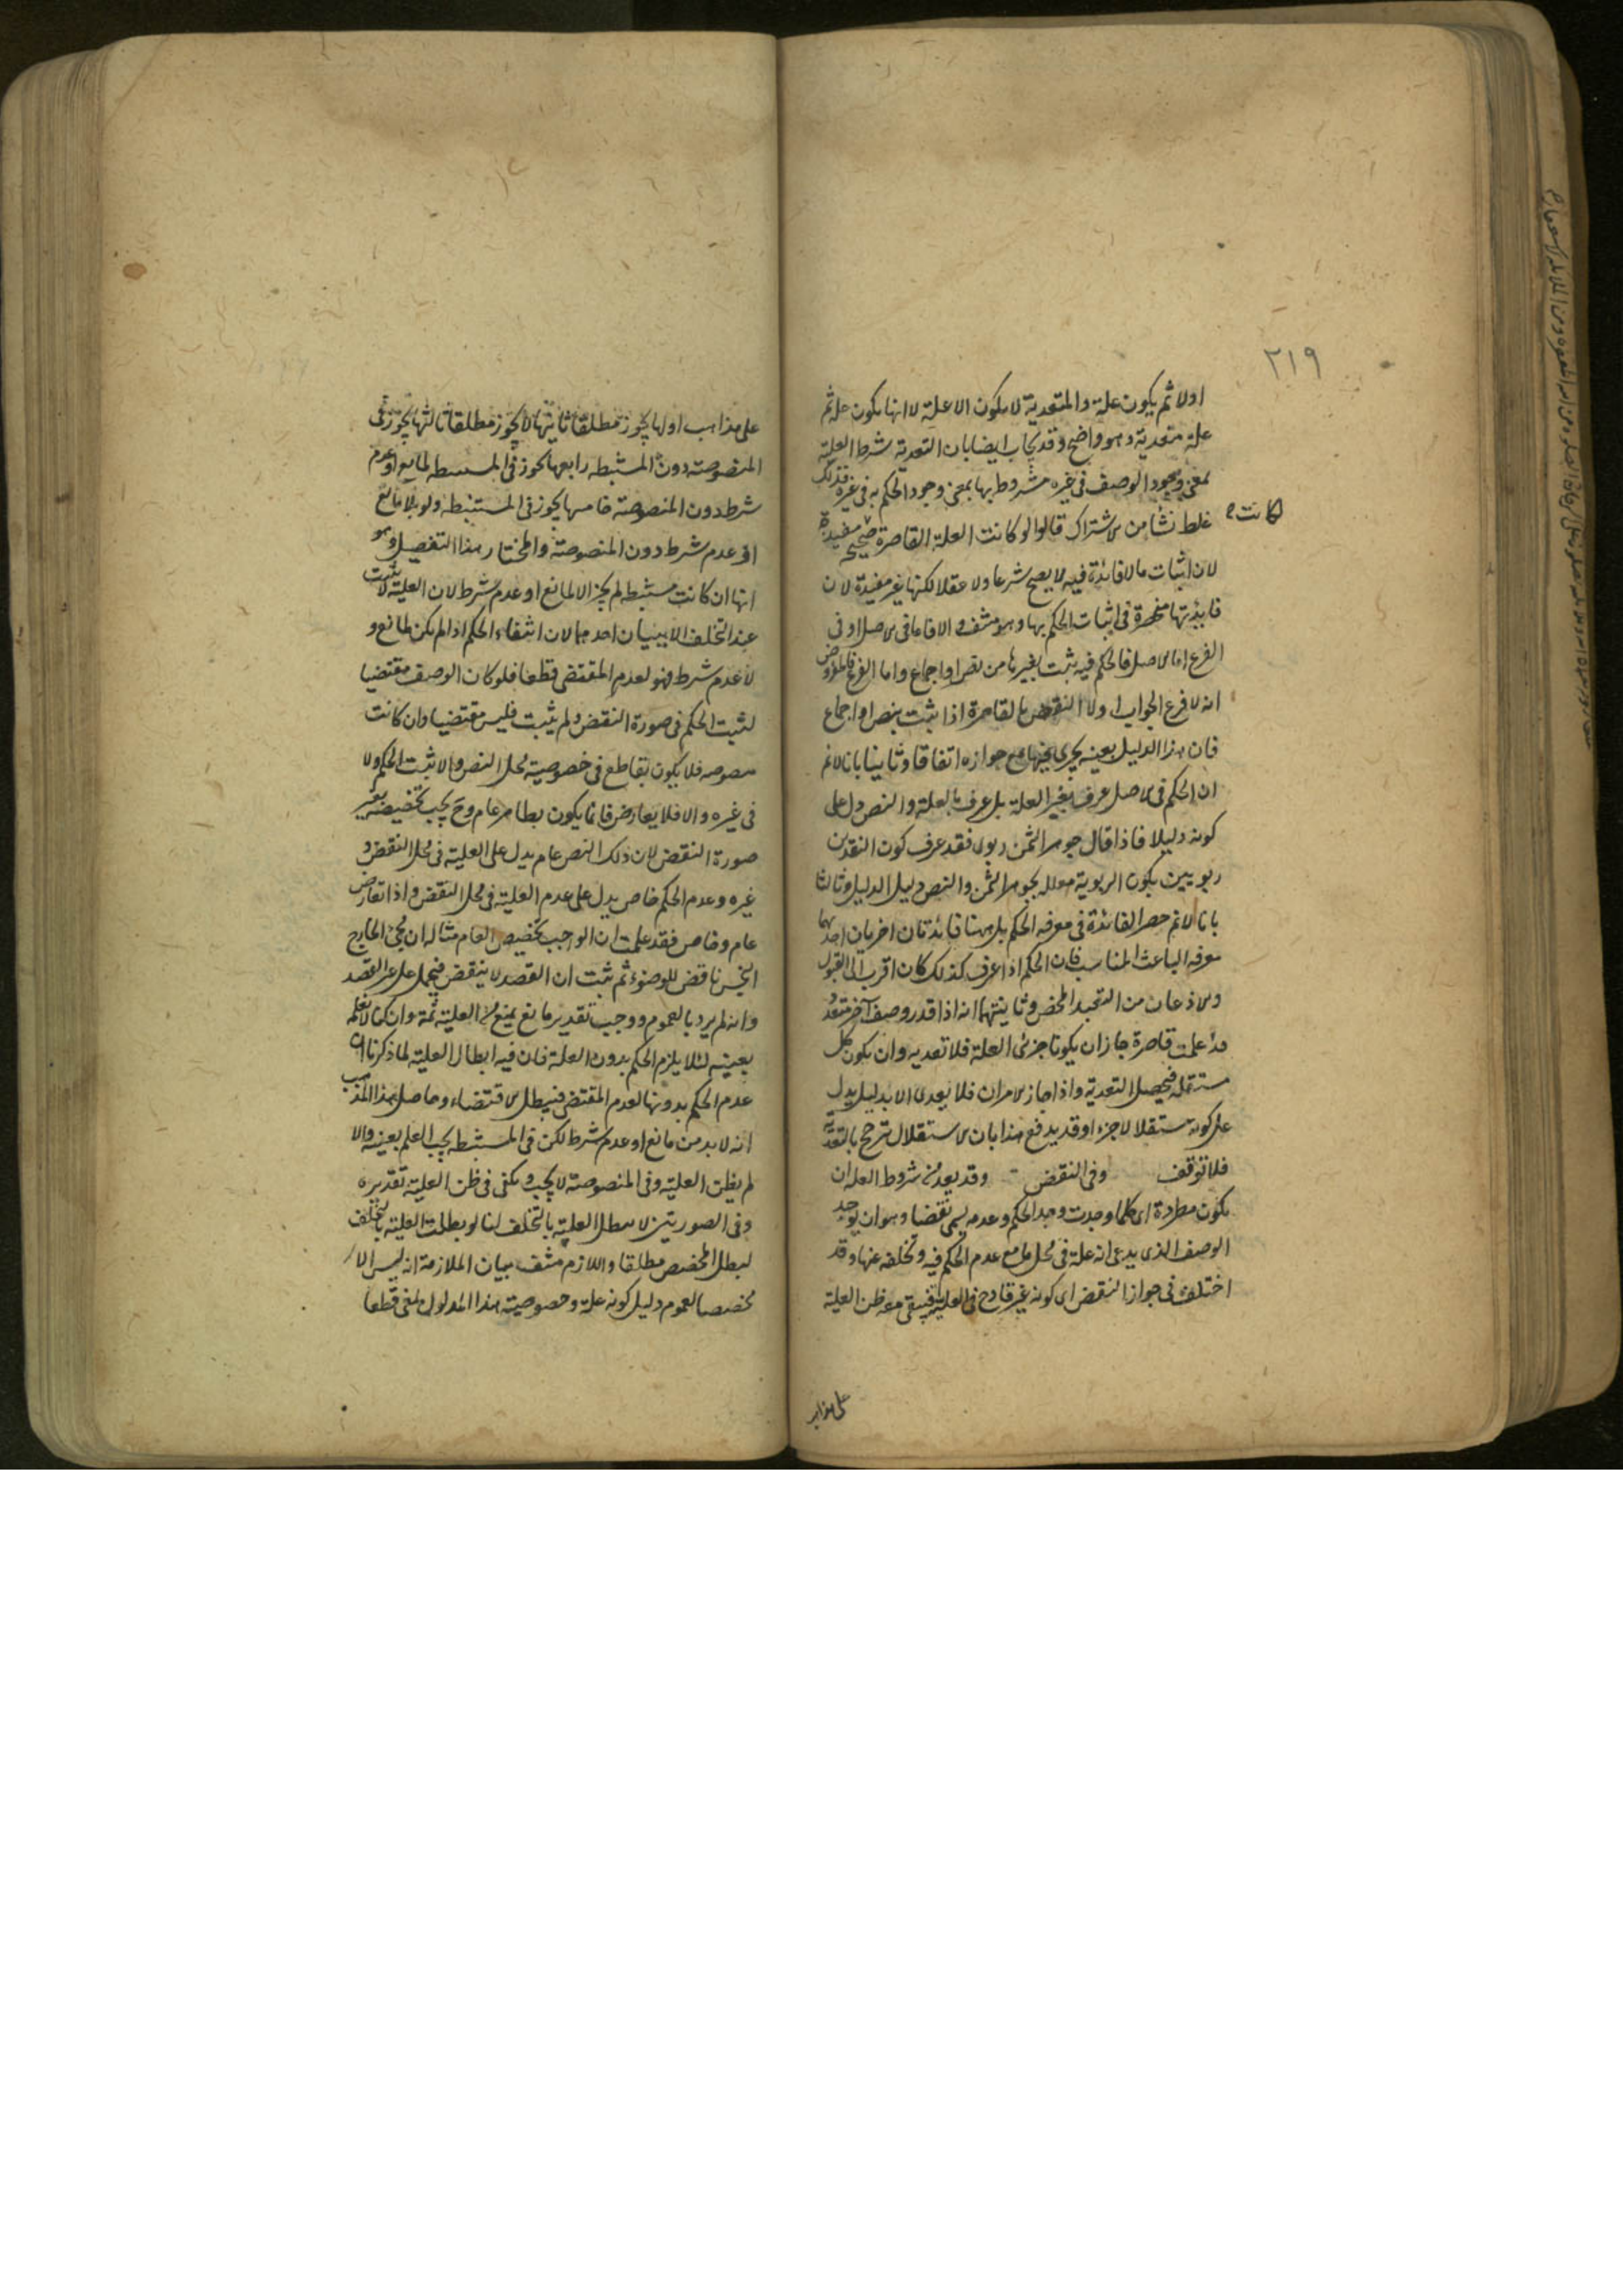 ٢١٩
اولا ثم يكون علة والمتعدية لا يكون الا علة لا انها يكون علة ثم
علة متعدية وهو واضح وقد يجاب ايضا بان التعدية شرط العلية
بمعنى وجود الوصف فى غيره مشروط بها بمعنى وجود الحكم به فى غيره فذلك
غلط نشأ من الاشتراك قالوا لو كانت العلة القاصرة صحيحة لكانت مفيدة
لان اثبات ما لا فائدة فيه لا يصح شرعا ولا عقلا لكنها غير مفيدة لان
فايدتها منحصرة فى اثبات الحكم بها وهو منتف والا فاما فى الاصل او فى
الفرع اما الاصل فالحكم فيه يثبت بغيرها من نص او اجماع واما الفرع فالمفروض
انه لا فرع الجواب اولا النقض بالقاصرة اذا يثبت بنص او اجماع
فان هذا الدليل بعينه يجرى فيها مع جوازه اتفاقا وثانيا بانا لا نم
ان الحكم فى الاصل عرف بغير العلة بل عرف بالعلة والنص دل على
كونه دليلا فاذا قال جوهر الثمن ربوى فقد عرف كون النقدين
ربويين بكون الربوية معللة بجوهر الثمن والنص دليل الدليل وثالثا
بانا لا نم حصر الفائدة فى معرفة الحكم بل ههنا فائدتان اخريان احديهما
معرفة الباعث المناسب فان الحكم اذا عرف كذلك كان اقرب الى القبول
والاذعان من التعبد المحض وثانيتهما انه اذا قدر وصف آخر متعد
قاصرة جاز ان يكونا جزئى العلة فلا تعدية وان يكون كل
مستقلة فيحصل التعدية واذا جاز الامران فلا يعدى الا بدليل يدل
على كونه مستقلا لا جزءا وقد يدفع هذا بان الاستقلال ترجح بالتعدية
فلا توقف وفى النقض وقد يعد من شروط العلة ان
يكون مطردة اى كلما وجدت وجد الحكم وعدمه يسمى نقضا وهو ان يوجد
الوصف الذى يدعى انه علة فى محل ما مع عدم الحكم فيه وتخلفه عنها وقد
اختلف فى جواز النقض اى كونه غير قادح فى العلية فيبقى معه ظن العلية
على مذاهب
على مذاهب اولها يجوز مطلقا ثانيها لا يجوز مطلقا ثالثها يجوز فى
المنصوصة دون المستنبطة رابعها يجوز فى المستنبطة لمانع او عدم
شرط دون المنصوصة خامسها يجوز فى المستنبطة ولو بلا مانع
او عدم شرط دون المنصوصة والمختار هذا التفصيل وهو
انها ان كانت مستنبطة لم يجز الا لمانع او عدم شرط لان العلية لا تثبت
عند التخلف الا ببيان احدهما لان انتفاء الحكم اذا لم يكن لمانع و
لا عدم شرط فهو لعدم المقتضى قطعا فلو كان الوصف مقتضيا
لثبت الحكم فى صورة النقض ولم يثبت فليس مقتضيا وان كانت
منصوصة فلا يكون بقاطع فى خصوصية محل النص والا ثبت الحكم ولا
فى غيره والا فلا يعارض فانما يكون بظاهر عام وح يجب تخصيصه بغير
صورة النقض لان ذلك النص عام يدل على العلية فى محل النقض و
غيره وعدم الحكم خاص يدل على عدم العلية فى محل النقض واذا تعارض
عام وخاص فقد علمت ان الواجب تخصيص العام مثاله ان يجئ الخارج
النجس ناقض للوضوء ثم ثبت ان الفصد لا ينقض فيحمل على غير الفصد
وانه لم يرد بالعموم ووجب تقدير مانع يمنع من العلية ثمة وان كنا لا نعلمه
بعينه لئلا يلزم الحكم بدون العلة فان فيه ابطال العلية لما ذكرنا ان
عدم الحكم بدونها لعدم المقتضى فيبطل الاقتضاء وحاصل هذا المذهب
انه لا بد من مانع او عدم شرط لكن فى المستنبطة يجب العلم بعينه والا
لم يظن العلية وفى المنصوصة لا يجب ويكفى فى ظن العلية تقديره
وفى الصورتين لا يبطل العلية بالتخلف لنا لو بطلت العلية بالتخلف
لبطل المخصص مطلقا واللازم منتف بيان الملازمة انه ليس الا
مخصصا لعموم دليل كونه علة وخصوصية هذا المدلول ملغى قطعا